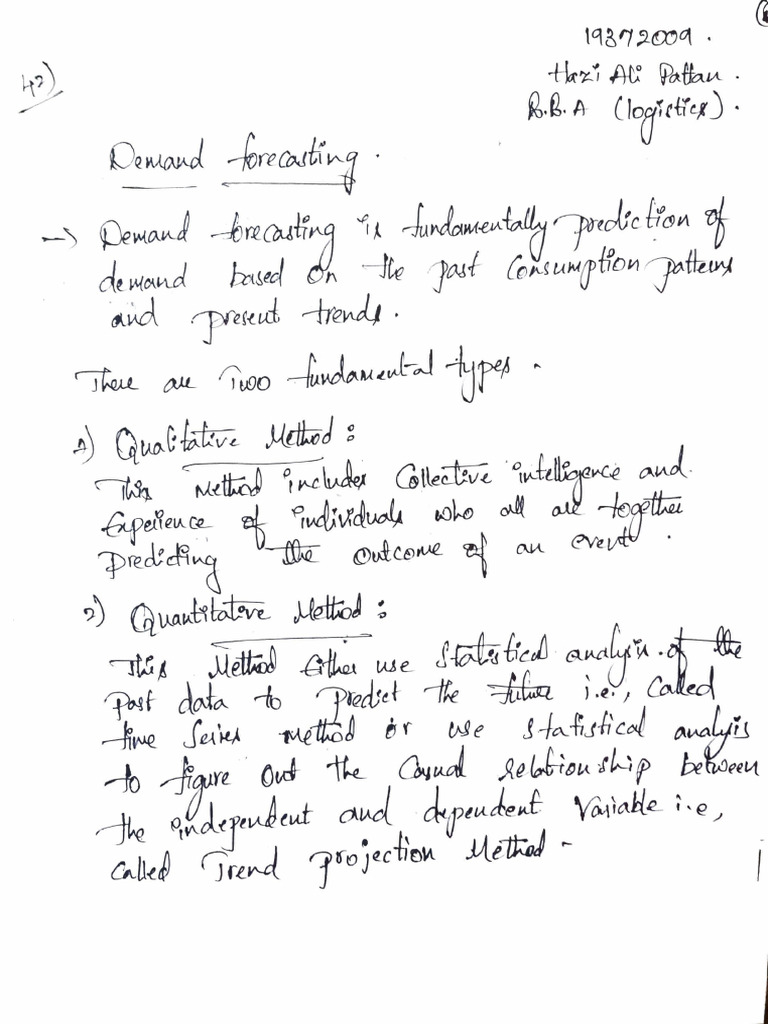 19372009.
Hazi Ali Pattan.
B.B.A (logistics).
42)
Demand forecasting.
→ Demand forecasting is fundamentally prediction of
demand based on the past Consumption patterns
and present trends.
There are Two fundamental types.
1) Qualitative Method:
This Method includes Collective intelligence and
Experience of individuals who all are together
Predicting the outcome of an event.
2) Quantitative Method:
This Method Either use Statistical analysis of the
past data to predict the future i.e., Called
time Series method or use statistical analysis
to figure out the Casual relationship between
the independent and dependent Variable i.e,
called Trend projection Method.